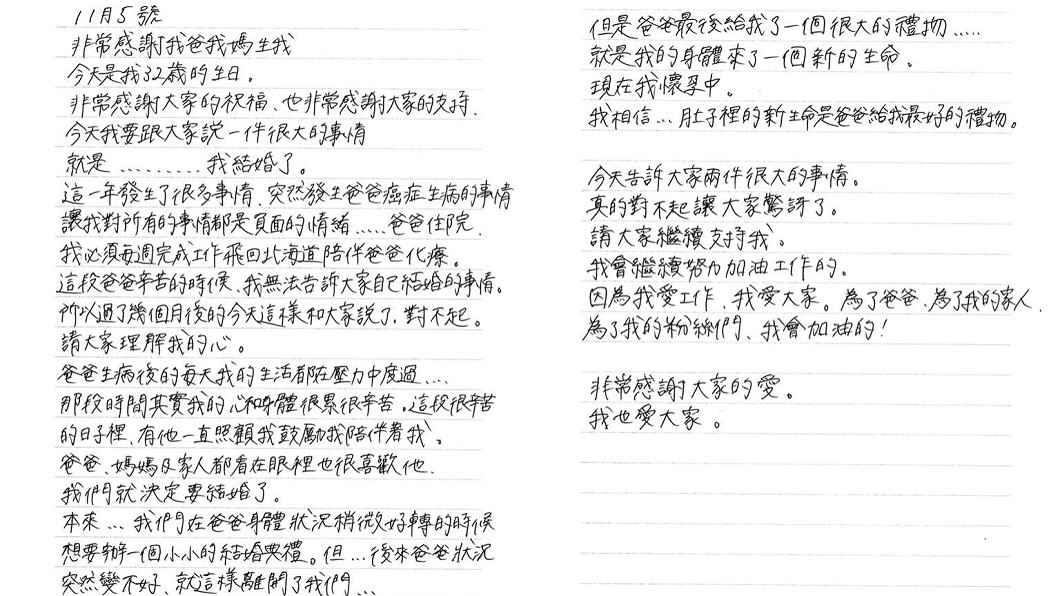 11月5號
非常感謝我爸我媽生我
今天是我32歲的生日。
非常感謝大家的祝福、也非常感謝大家的支持.
今天我要跟大家說一件很大的事情
就是.........我結婚了。
這一年發生了很多事情、突然發生爸爸癌症生病的事情
讓我對所有的事情都是負面的情緒.....爸爸住院.
我必須每週完成工作飛回北海道陪伴爸爸化療。
這段爸爸辛苦的時候、我無法告訴大家自己結婚的事情。
所以過了幾個月後的今天這樣和大家說了.對不起。
請大家理解我的心。
爸爸生病後的每天我的生活都在壓力中度過....
那段時間其實我的心和身體很累很辛苦。這段很辛苦
的日子裡、有他一直照顧我鼓勵我陪伴著我、。
爸爸、媽媽及家人都看在眼裡也很喜歡他.
我們就決定要結婚了。
本來...我們在爸爸身體狀況稍微好轉的時候
想要辦一個小小的結婚典禮。但...後來爸爸狀況
突然變不好、就這樣離開了我們...
但是爸爸最後給我了一個很大的禮物.....
就是我的身體來了一個新的生命.
現在我懷孕中。
我相信...肚子裡的新生命是爸爸給我最好的禮物。
今天告訴大家兩件很大的事情。
真的對不起讓大家驚訝了。
請大家繼續支持我、。
我會繼續努力加油工作的.
因為我愛工作、我愛大家。為了爸爸、為了我的家人.
為了我的粉絲們、我會加油的!
非常感謝大家的愛。
我也愛大家。